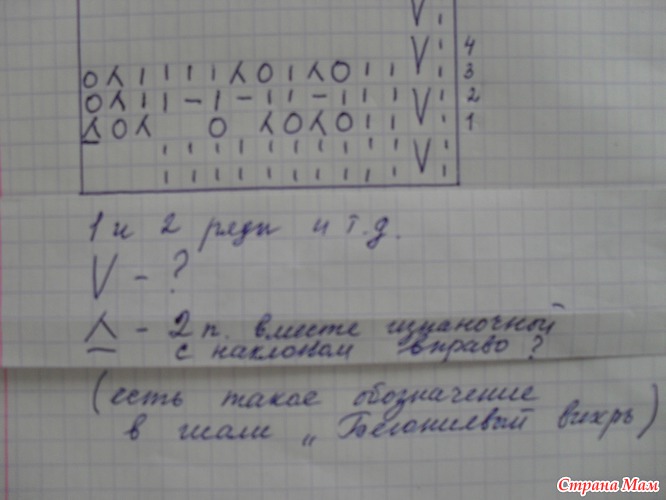 V ı
V ı 4
O ⋏ ı ı ı ı ı ⋏ O ı ⋏ O ı ı ı 3
O ⋏ ı ı – ı – ı ı – ı ı ı V ı 2
⋏ O ⋏ O ⋏ O ⋏ O ı ı ı 1
ı ı ı ı ı ı ı ı ı V ı
ı ı ı ı ı ı ı ı ı ı
1 и 2 ряды и т.д.
V - ?
⋏ - 2 п. вместе изнаночной
с наклоном вправо?
(есть такое обозначение
в шали „Бегониевый вихрь)
Страна Мам